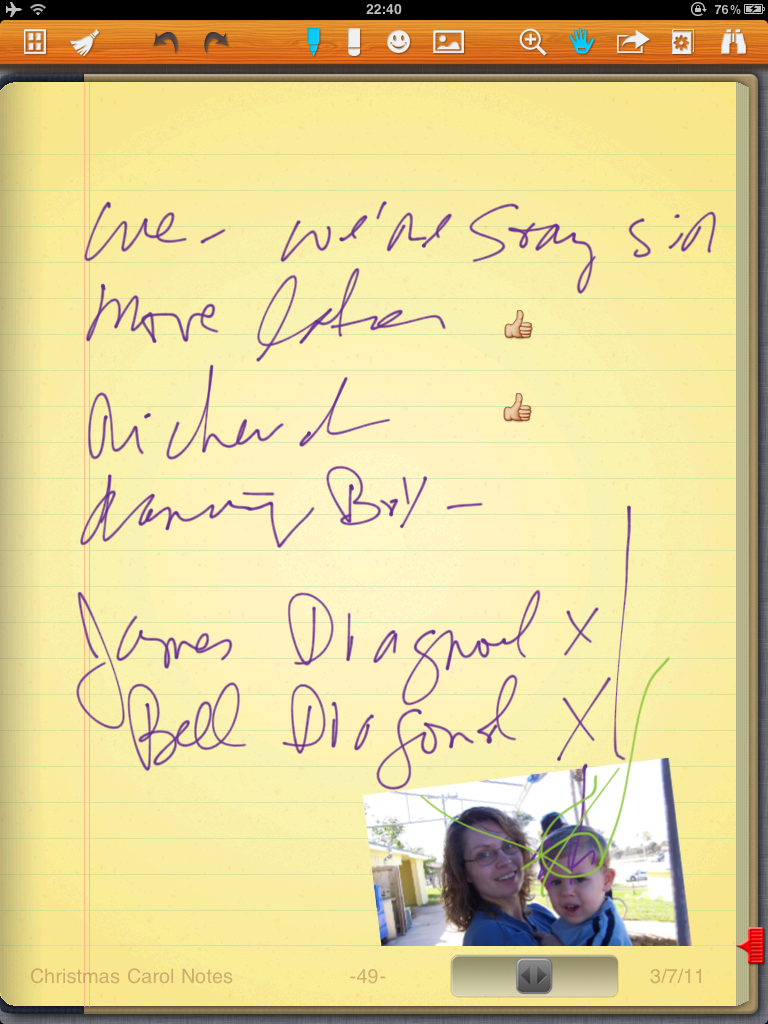 22:40
76%
we're Stay sin
More
Richard
Boy –
James Diagnol X
Bell Diagonal X
Christmas Carol Notes
-49-
3/7/11